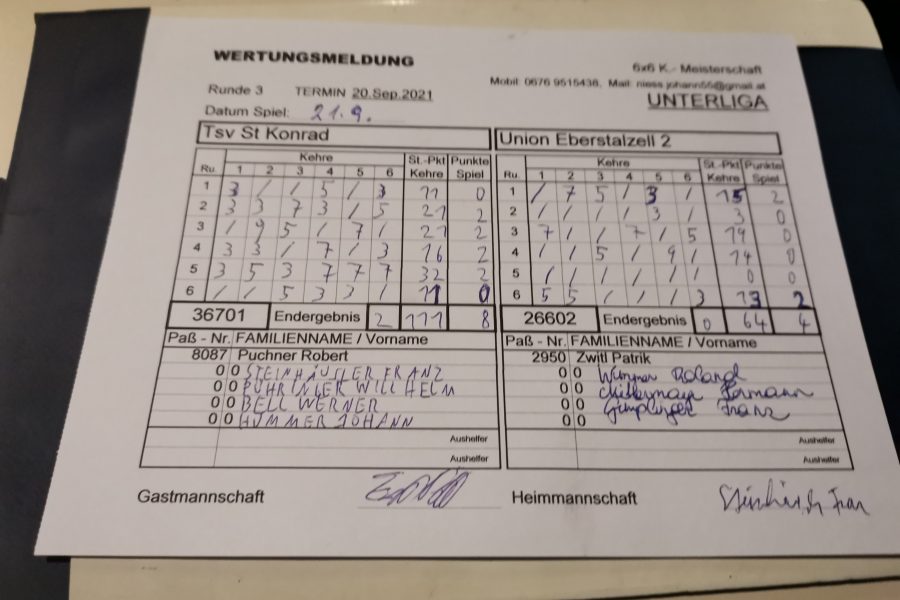 WERTUNGSMELDUNG
6x6 K.- Meisterschaft
Mobil: 0676 9515438, Mail: niess.johann55@gmail.at
Runde 3 TERMIN 20.Sep.2021 UNTERLIGA
Datum Spiel: 21.9.
Tsv St Konrad Union Eberstalzell 2
Kehre St.-Pkt Punkte Kehre St.-Pkt Punkte
Ru. 1 2 3 4 5 6 Kehre Spiel Ru. 1 2 3 4 5 6 Kehre Spiel
1 3 / / 5 / 3 11 0 1 / 7 5 / 3 / 15 2
2 3 3 7 3 / 5 21 2 2 / / / / 3 / 3 0
3 / 9 5 / 7 / 21 2 3 7 / / 7 / 5 19 0
4 3 3 / 7 / 3 16 2 4 / / 5 / 9 / 14 0
5 3 5 3 7 7 7 32 2 5 / / / / / / 0 0
6 / / 5 3 3 / 11 0 6 5 5 / / / 3 13 2
36701 Endergebnis 2 111 8 26602 Endergebnis 0 64 4
Paß - Nr. FAMILIENNAME / Vorname Paß - Nr. FAMILIENNAME / Vorname
8087 Puchner Robert 2950 Zwitl Patrik
0 0 STEINHÄUSLER FRANZ 0 0 Wimmer Roland
0 0 PÜHRINGER WILLHELM 0 0 Hermann
0 0 BELL WERNER 0 0 Franz
0 0 HUMMER JOHANN 0 0
Aushelfer Aushelfer
Aushelfer Aushelfer
Gastmannschaft Heimmannschaft